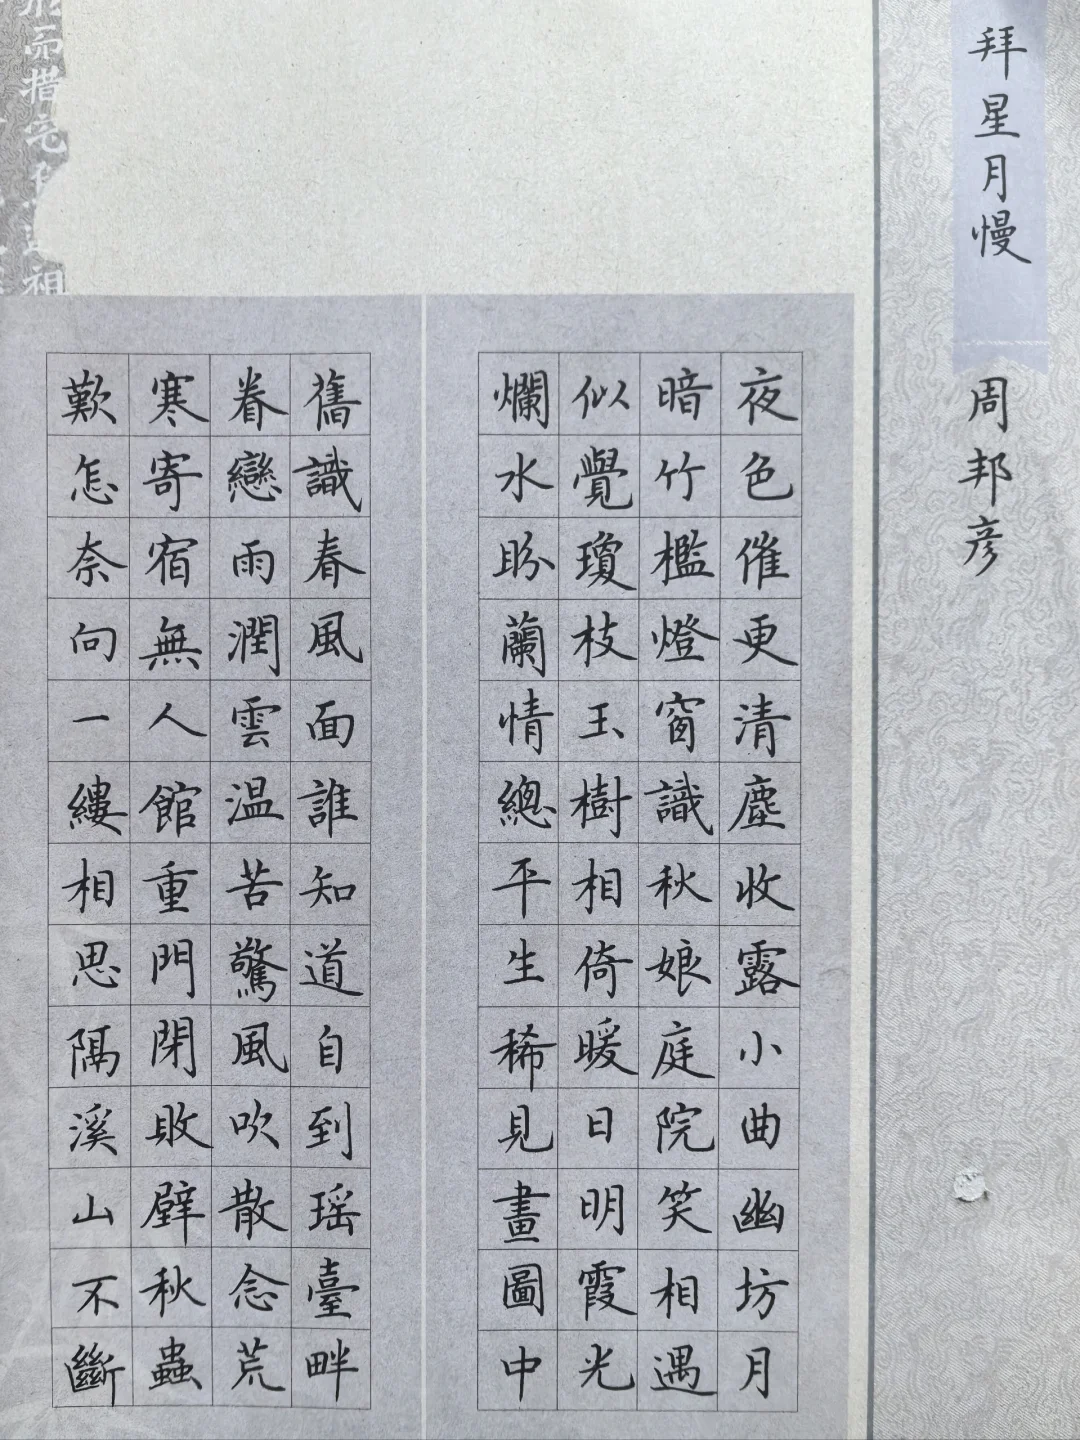 拜星月慢
周邦彦
夜色催更清塵收露小曲幽坊月
暗竹檻燈窗識秋娘庭院笑相遇
似覺瓊枝玉樹相倚暖日明霞光
爛水盼蘭情總平生稀見畫圖中
舊識春風面誰知道自到瑶臺畔
眷戀雨潤雲温苦驚風吹散念荒
寒寄宿無人館重門閉敗壁秋蟲
歎怎奈向一縷相思隔溪山不斷
而措宅
祖